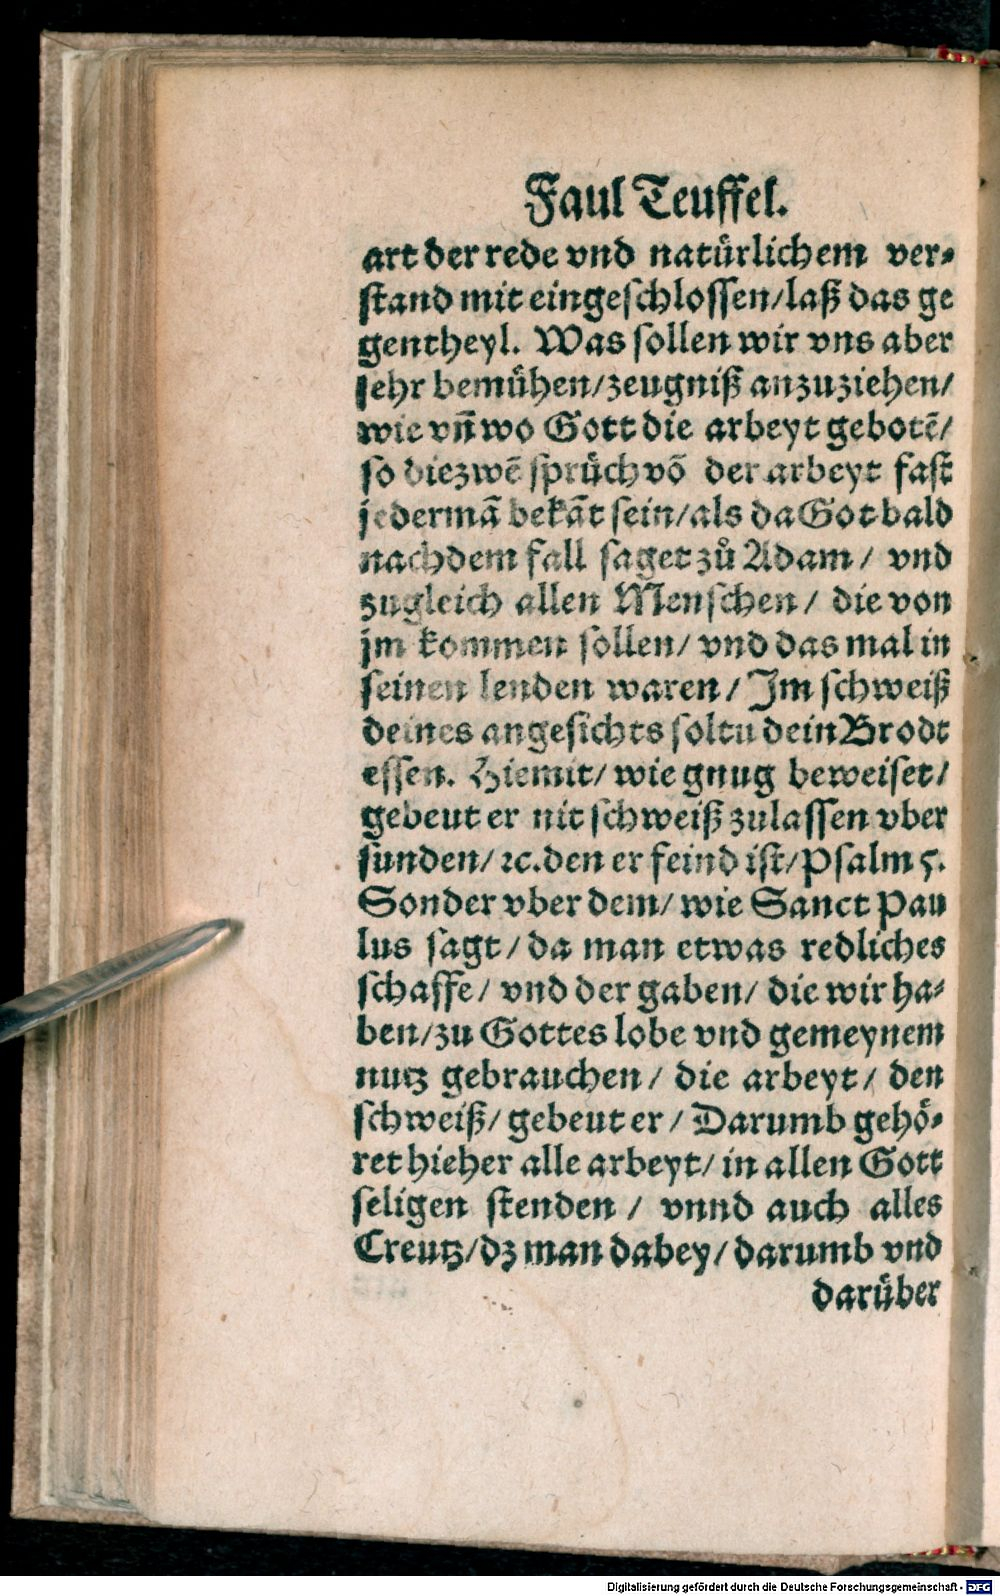 Faul Teuffel.
art der rede vnd natürlichem ver⸗
ſtand mit eingeſchloſſen/laß das ge
gentheyl. Was ſollen wir vns aber
ſehr bemühen/zeugniß anzuziehen/
wie vn̄ wo Gott die arbeyt gebotē/
ſo die zwē ſprüch vō der arbeyt faſt
jedermā bekāt ſein/als da Got bald
nach dem fall ſaget zů Adam/ vnd
zugleich allen Menſchen/ die von
jm kommen ſollen/ vnd das mal in
ſeinen lenden waren/ Im ſchweiß
deines angeſichts ſoltu dein Brodt
eſſen. Hiemit/ wie gnug beweiſet/
gebeut er nit ſchweiß zulaſſen vber
ſunden/ ꝛc. den er feind iſt/ Pſalm 5.
Sonder vber dem/ wie Sanct Pau
lus ſagt/ da man etwas redliches
ſchaffe/ vnd der gaben/ die wir ha⸗
ben/zu Gottes lobe vnd gemeynem
nutz gebrauchen/ die arbeyt/ den
ſchweiß/ gebeut er/ Darumb gehö⸗
ret hieher alle arbeyt/ in allen Gott
ſeligen ſtenden/ vnnd auch alles
Creutz/dz man dabey/ darumb vnd
darüber
Digitalisierung gefördert durch die Deutsche Forschungsgemeinschaft - DFG